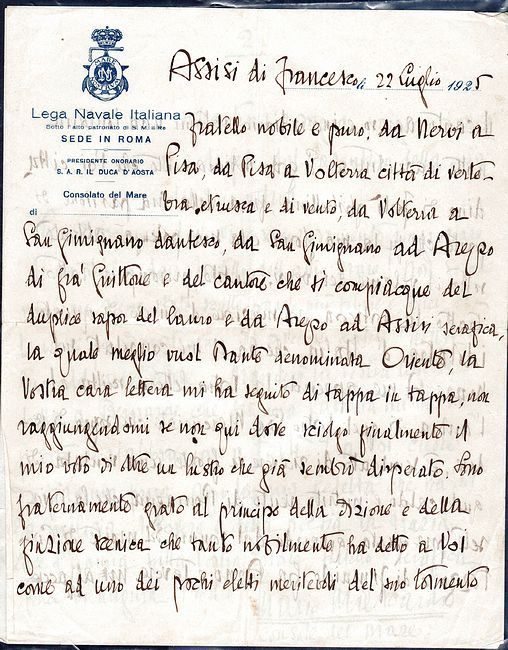 Assisi di Francesco, li 22 Luglio 1925
Lega Navale Italiana
Sotto l'alto patronato di S. M. il Re
SEDE IN ROMA
PRESIDENTE ONORARIO
S. A. R. IL DUCA D'AOSTA
Consolato del Mare
di
Fratello nobile e puro, da Nervi a
Pisa, da Pisa a Volterra città di verte-
bra etrusca e di vento, da Volterra a
San Gimignano dantesco, da San Gimignano ad Arezzo
di fra' Guittone e del cantore che si compiacque del
duplice sapor del lauro e da Arezzo ad Assisi serafica,
la quale meglio vuol Dante denominata Oriente, la
Vostra cara lettera mi ha seguito di tappa in tappa, non
raggiungendomi se non qui dove sciolgo finalmente il
mio voto di oltre un lustro che già sembrò disperato. Sono
fraternamente grato al principe della dizione e della
finzione scenica che tanto nobilmente ha detto a Voi
come ad uno dei pochi eletti meritevoli del suo tormento